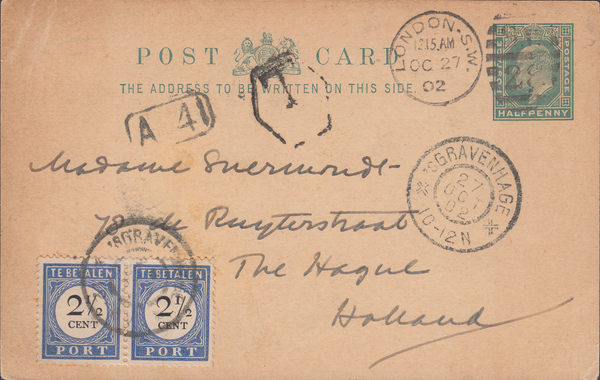 POST CARD
THE ADDRESS TO BE WRITTEN ON THIS SIDE.
LONDON.S.W.
12.15.AM
OC 27
02
POSTAGE
HALFPENNY
T
A 41
Madame Suermondt-
de Ruyterstraat
The Hague
Holland
'SGRAVENHAGE
27
OCT
02
10-12N
'SGRAVEN
TE BETALEN
2 1/2
CENT
PORT
TE BETALEN
2 1/2
CENT
PORT